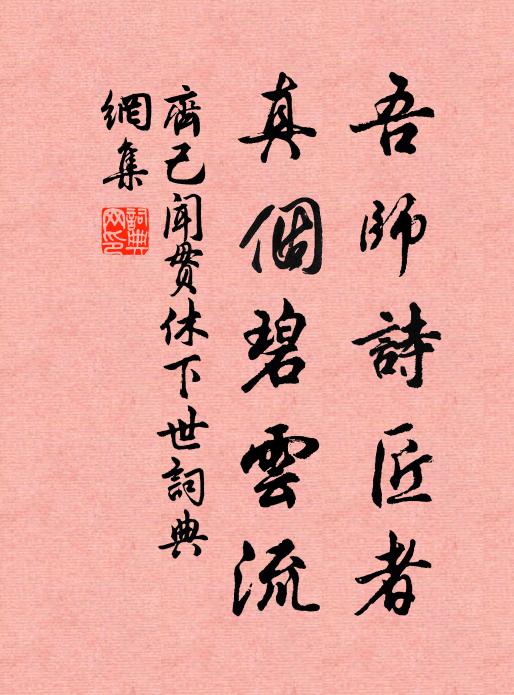 吾師詩匠者
真個碧雲流
齊己聞貫休下世詞典
網集
詞典網印